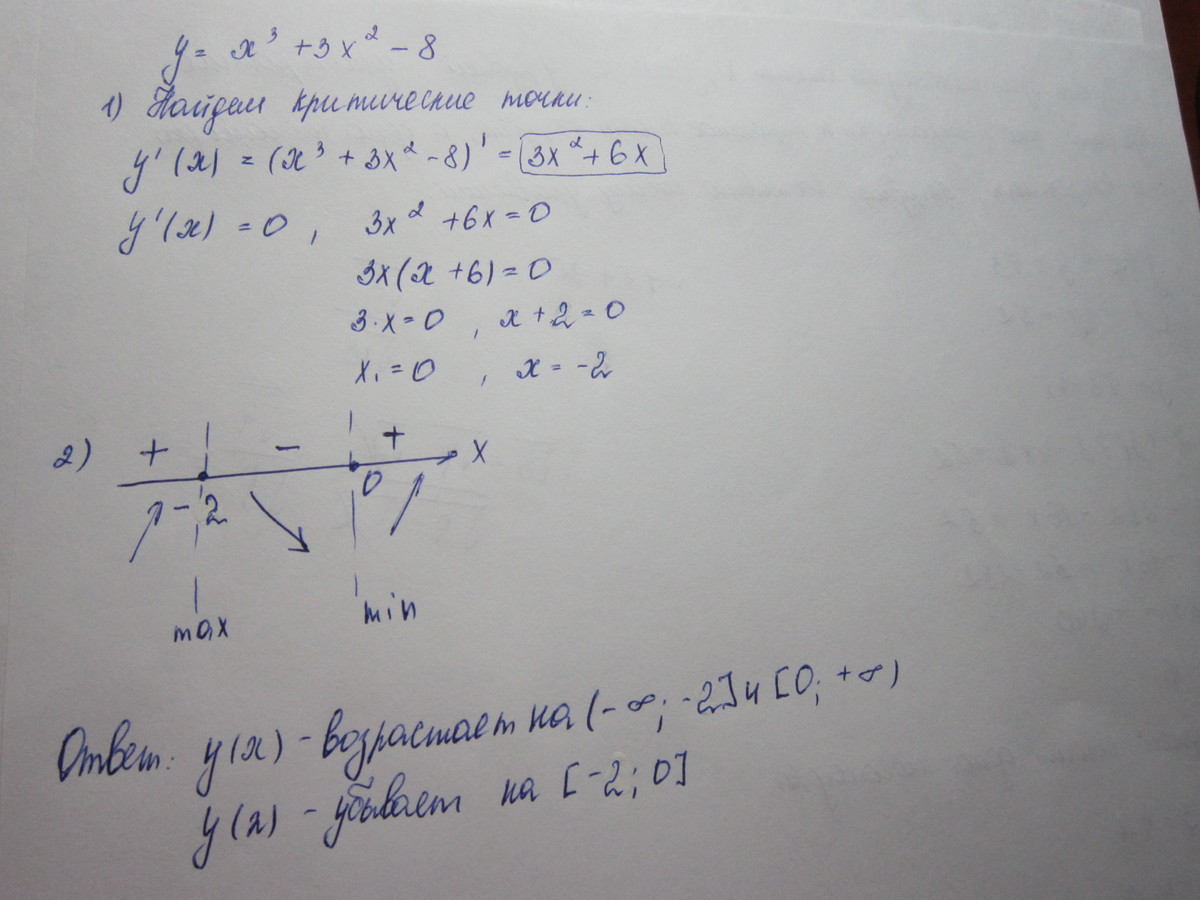 y = x³ + 3x² - 8
1) Найдем критические точки:
y'(x) = (x³ + 3x² - 8)' = 3x² + 6x
y'(x) = 0 , 3x² + 6x = 0
3x(x + 6) = 0
3·x = 0 , x + 2 = 0
x₁ = 0 , x = -2
2) + - + x
-2 0
max min
Ответ: y(x) - возрастает на (-∞; -2] и [0; +∞)
y(x) - убывает на [-2; 0]